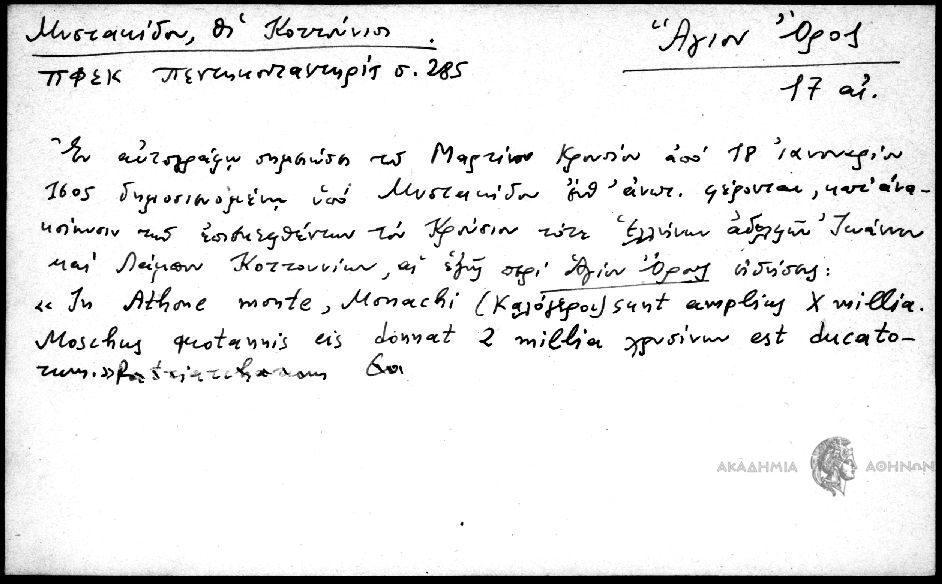 Μυστακίδου, Οἱ Κοττούνιοι.
ΠΦΕΚ Πεντηκονταετηρὶς σ. 285
Ἅγιον Ὄρος
17 αἰ.
Ἐν αὐτογράφῳ σημειώσει τοῦ Μαρτίνου Κρουσίου ἀπὸ 18 Ἰανουαρίου
1605 δημοσιευομένῃ ὑπὸ Μυστακίδου ἔνθ' ἀνωτ. φέρονται, κατ' ἀνα-
κοίνωσιν τῶν ἐπισκεφθέντων τὸν Κρούσιον τότε Ἑλλήνων ἀδελφῶν Ἰωάννου
καὶ Κοττουνίων, αἱ ἑξῆς περὶ Ἁγίου Ὄρους εἰδήσεις:
« In Athone monte, Monachi (Καλόγεροι) sunt amplius X millia.
Moschus quotannis eis donnat 2 millia χρυσίνων est ducato-
rum.»
ΑΚΑΔΗΜΙΑ ΑΘΗΝΩΝ